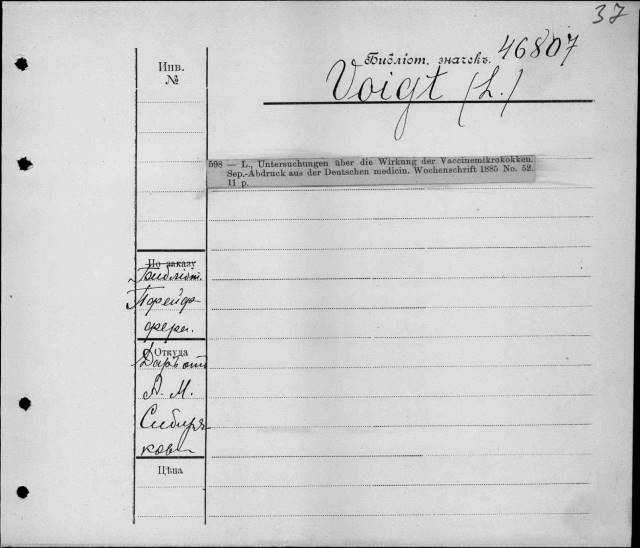 37
Инв.
№
Библіот. значекъ. 46807
Voigt (L.)
598 — L., Untersuchungen über die Wirkung der Vaccinemikrokokken.
Sep.-Abdruck aus der Deutschen medicin. Wochenschrift 1885 No. 52.
11 p.
По заказу
Библіот.
Пфейф-
фера.
Откуда
Даръ отъ
А. М.
Сибиря-
кова
Цѣна